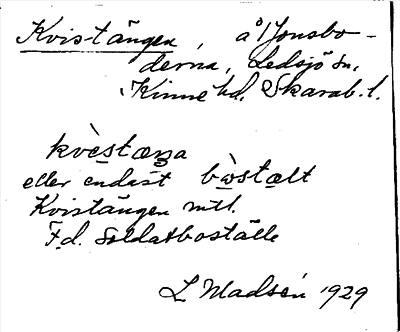 Kvistängen, å Jonsbo-
derna, Ledsjö sn,
Kinne hd. Skarab. l.
kvèstæŋa
eller endast bòstælt
Kvistängen mtl.
F.d. Soldatboställe
L Madsén 1929